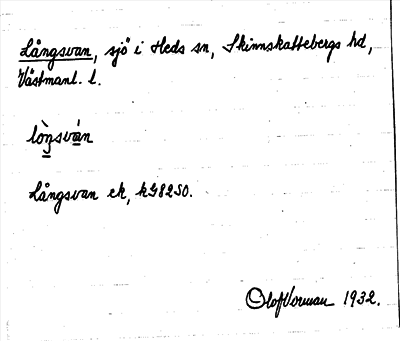 Långsvan, sjö i Heds sn, Skinnskattebergs hd,
Västmanl. l.
lo̖ŋsván
Långsvan ek, kG82SO.
Olof Vorman 1932.